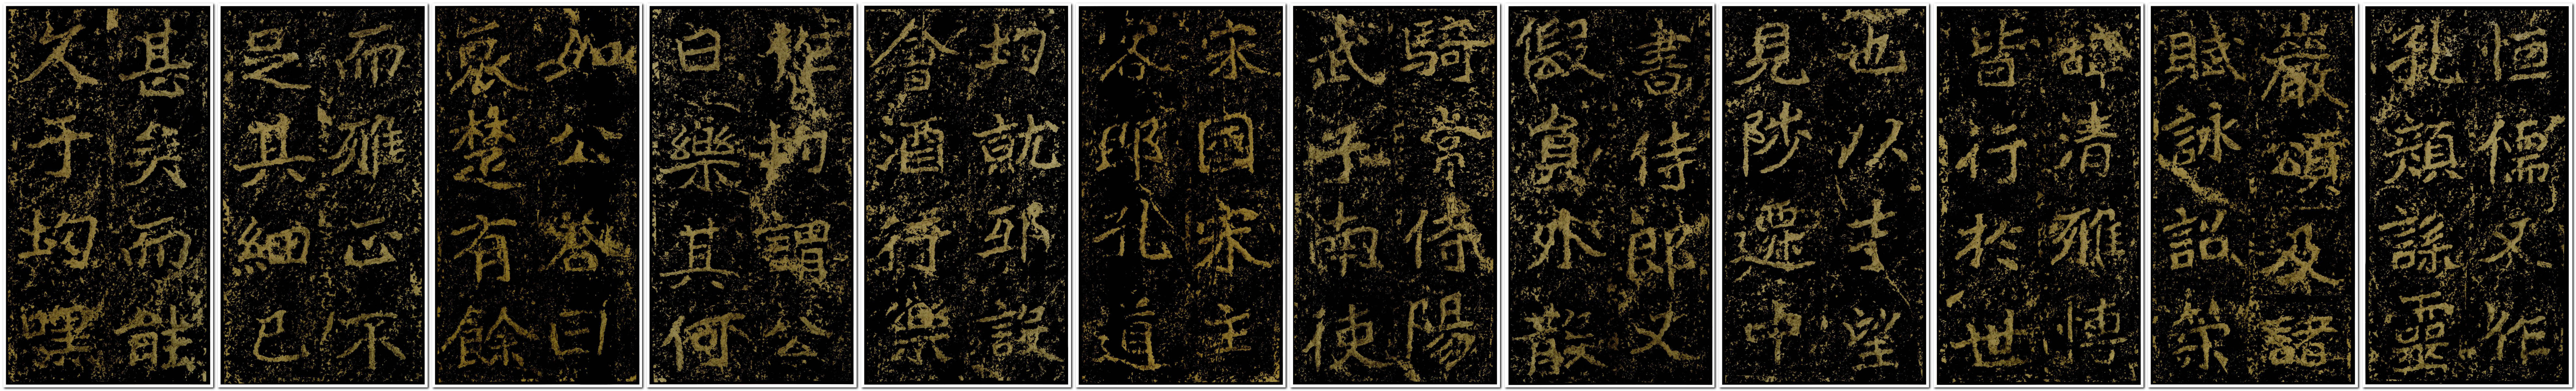 恒儒又作
孔顏誄靈
巖頌及諸
賦詠詔策
辭清雅博
皆行於世
也以才望
見陟遷中
書侍郎又
假員外散
騎常侍陽
武子南使
宋國宋主
客郎孔道
均就邸設
會酒行樂
作均謂公
曰樂其何
如公荅曰
哀楚有餘
而雅正不
足其細已
甚矣而能
久乎均嘿